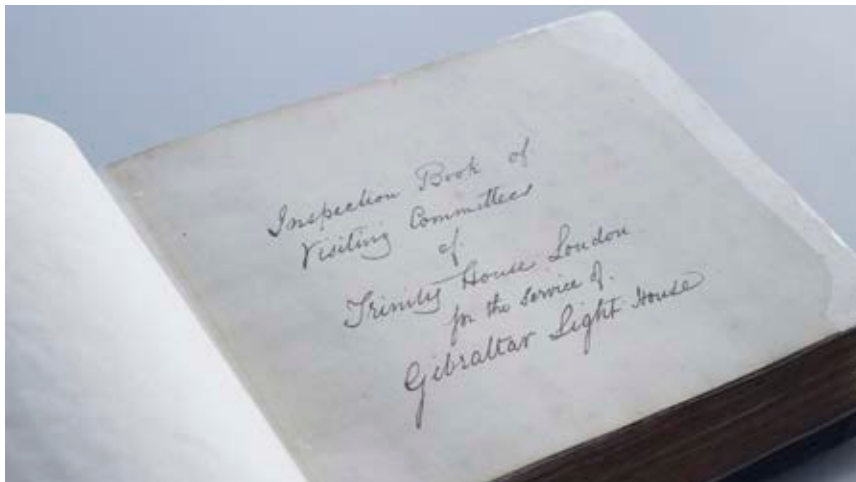 Inspection Book of
Visiting Committees
of
Trinity House London
for the service of.
Gibraltar Light House